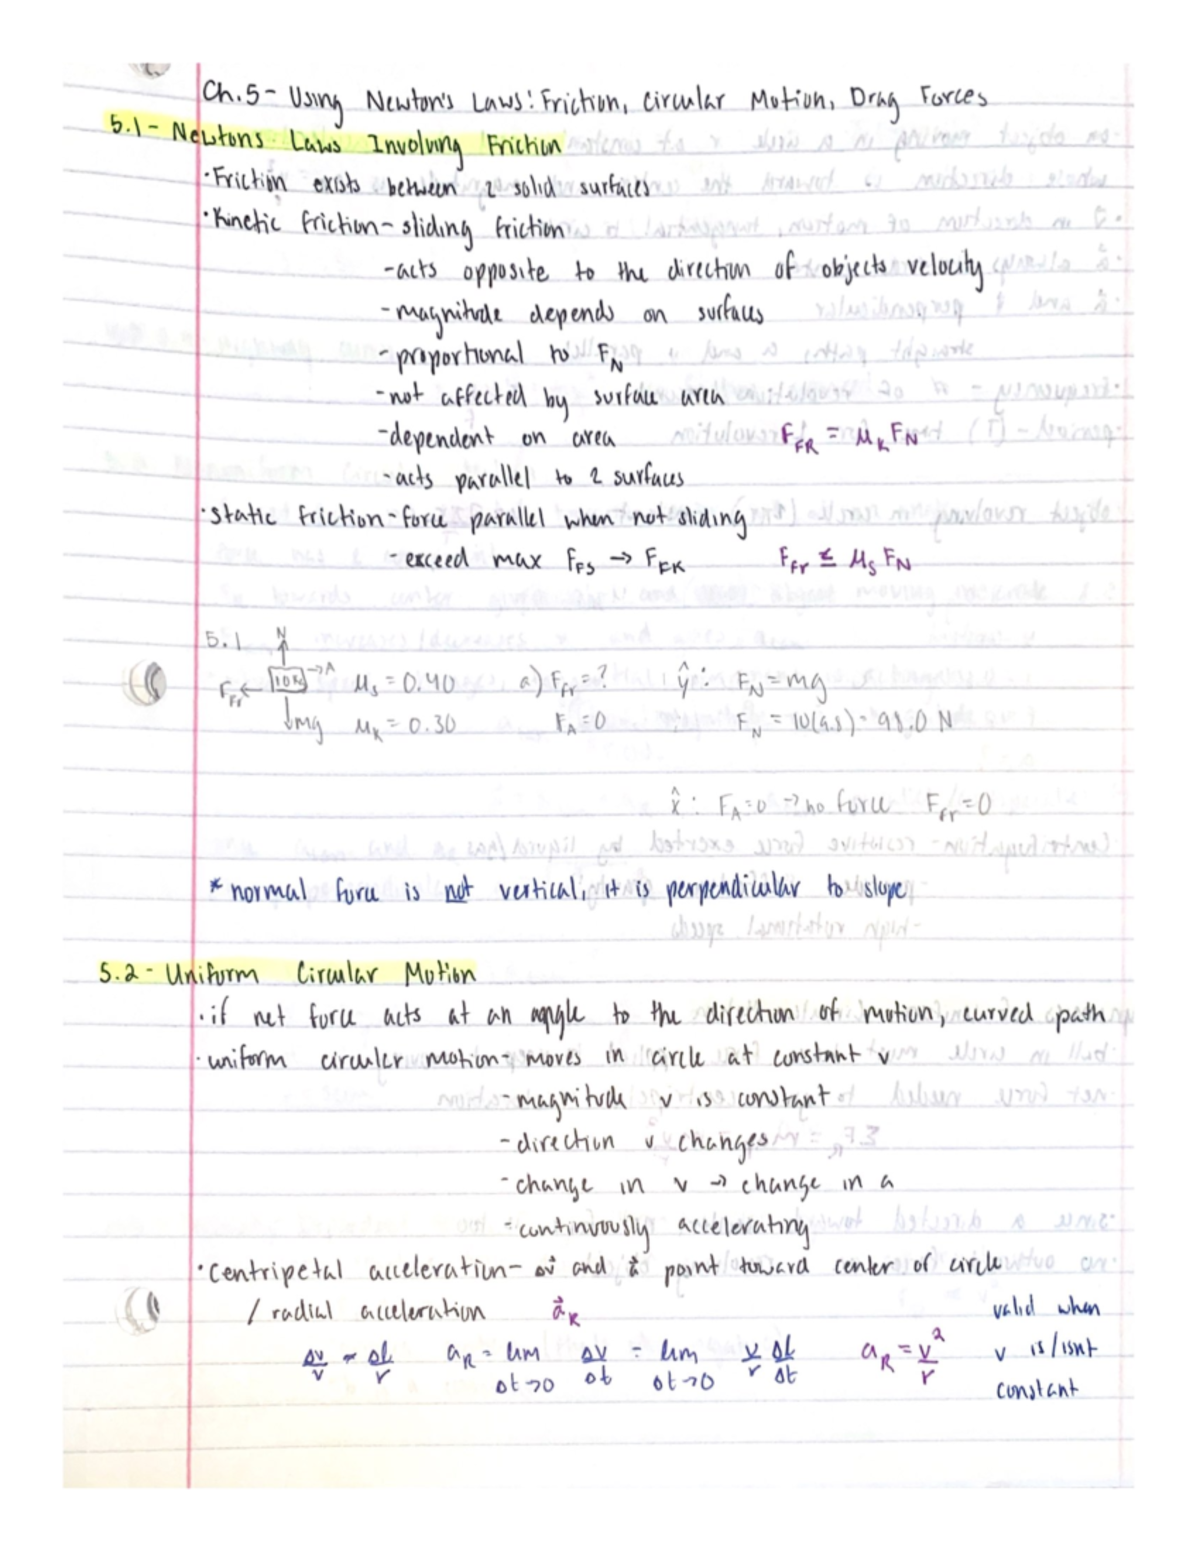 Ch.5- Using Newton's Laws: Friction, Circular Motion, Drag Forces
5.1- Newtons Laws Involving Friction
·Friction exists between 2 solid surfaces
·Kinetic friction- sliding friction
-acts opposite to the direction of objects velocity
-magnitude depends on surfaces
-proportional to F_N
-not affected by surface area
-dependent on area F_FR = μ_k F_N
-acts parallel to 2 surfaces
·Static friction- force parallel when not sliding
-exceed max F_FS → F_FK F_fr ≤ μ_s F_N
5.1 N
F_Fr ← 10kg → A μ_s = 0.40 a) F_fr = ? ŷ: F_N = mg
↓mg μ_k = 0.30 F_A = 0 F_N = 10(9.8) = 98.0 N
x̂: F_A = 0 → no force F_fr = 0
* normal force is not vertical, it is perpendicular to slope
5.2 - Uniform Circular Motion
·if net force acts at an angle to the direction of motion, curved path
·uniform circular motion- moves in circle at constant v
-magnitude v is constant
-direction v changes
-change in v → change in a
-continuously accelerating
·Centripetal acceleration- Δv⃗ and a⃗ point toward center of circle
/ radial acceleration a⃗_R valid when
Δv/v ≈ Δl/r a_R = lim Δt→0 Δv/Δt = lim Δt→0 v/r Δl/Δt a_R = v²/r v is/isnt
constant